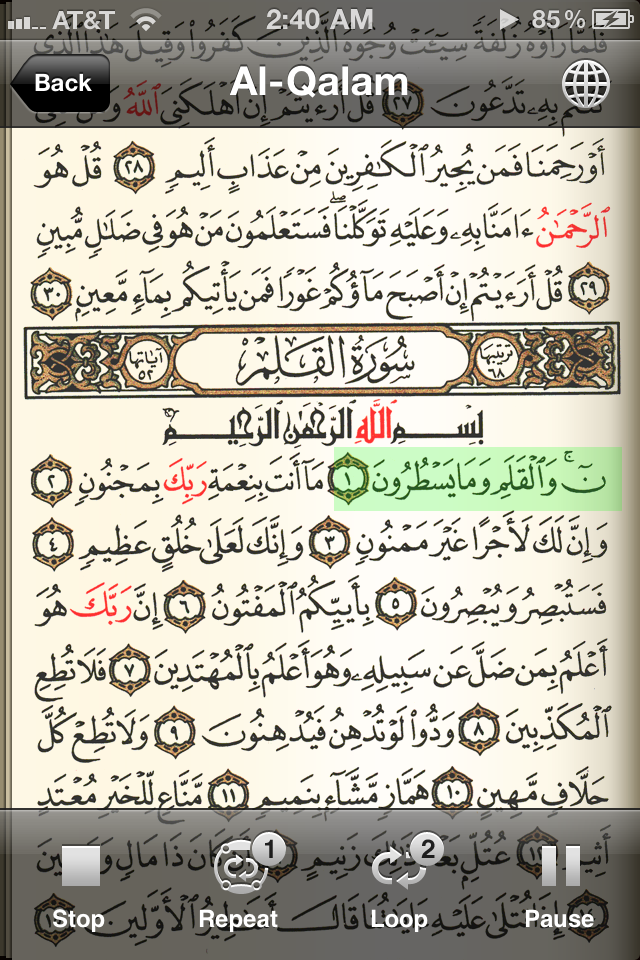 AT&T 2:40 AM 85%
فلما رأوه زلفة سيئت وجوه الذين كفروا وقيل هذا الذي
Back Al-Qalam
كنتم به تدعون ٢٧ قل أرءيتم إن أهلكني الله
أَوْ رَحِمَنَا فَمَن يُجِيرُ ٱلْكَـٰفِرِينَ مِنْ عَذَابٍ أَلِيمٍ ٢٨ قُلْ هُوَ
ٱلرَّحْمَـٰنُ ءَامَنَّا بِهِۦ وَعَلَيْهِ تَوَكَّلْنَا ۖ فَسَتَعْلَمُونَ مَنْ هُوَ فِى ضَلَـٰلٍ مُّبِينٍ
٢٩ قُلْ أَرَءَيْتُمْ إِنْ أَصْبَحَ مَآؤُكُمْ غَوْرًا فَمَن يَأْتِيكُم بِمَآءٍ مَّعِينٍۭ ٣٠
ترتيبها ٦٨ سُورَةُ القَلَمْ آياتها ٥٢
بِسْمِ اللَّهِ الرَّحْمَٰنِ الرَّحِيمِ
نٓ ۚ وَٱلْقَلَمِ وَمَا يَسْطُرُونَ ١ مَآ أَنتَ بِنِعْمَةِ رَبِّكَ بِمَجْنُونٍ ٢
وَإِنَّ لَكَ لَأَجْرًا غَيْرَ مَمْنُونٍ ٣ وَإِنَّكَ لَعَلَىٰ خُلُقٍ عَظِيمٍ ٤
فَسَتُبْصِرُ وَيُبْصِرُونَ ٥ بِأَييِّكُمُ ٱلْمَفْتُونُ ٦ إِنَّ رَبَّكَ هُوَ
أَعْلَمُ بِمَن ضَلَّ عَن سَبِيلِهِۦ وَهُوَ أَعْلَمُ بِٱلْمُهْتَدِينَ ٧ فَلَا تُطِعِ
ٱلْمُكَذِّبِينَ ٨ وَدُّوا۟ لَوْ تُدْهِنُ فَيُدْهِنُونَ ٩ وَلَا تُطِعْ كُلَّ
حَلَّافٍ مَّهِينٍ ١٠ هَمَّازٍ مَّشَّآءٍۭ بِنَمِيمٍ ١١ مَّنَّاعٍ لِّلْخَيْرِ مُعْتَدٍ
أَثِيمٍ ١٢ عُتُلٍّۭ بَعْدَ ذَٰلِكَ زَنِيمٍ كَانَ ذَا مَالٍ وَبَنِينَ
1 2
Stop Repeat Loop Pause
إِذَا تُتْلَىٰ عَلَيْهِ ءَايَـٰتُنَا قَالَ أَسَـٰطِيرُ ٱلْأَوَّلِينَ